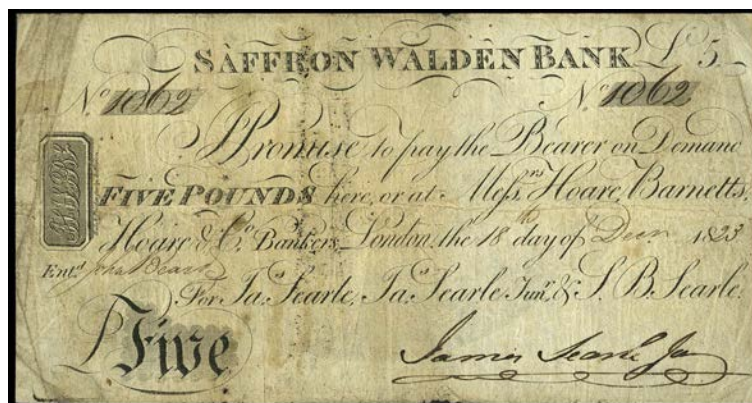 SAFFRON WALDEN BANK £5
No. 1062 No. 1062
I Promise to pay the Bearer on Demand
FIVE POUNDS here, or at Messrs. Hoare, Barnetts,
Hoare & Co. Bankers, London, the 18th day of Decr. 1823
Entd. John
For Jas. Searle, Jas. Searle Junr. & S. B. Searle.
£Five
James Searle Jun